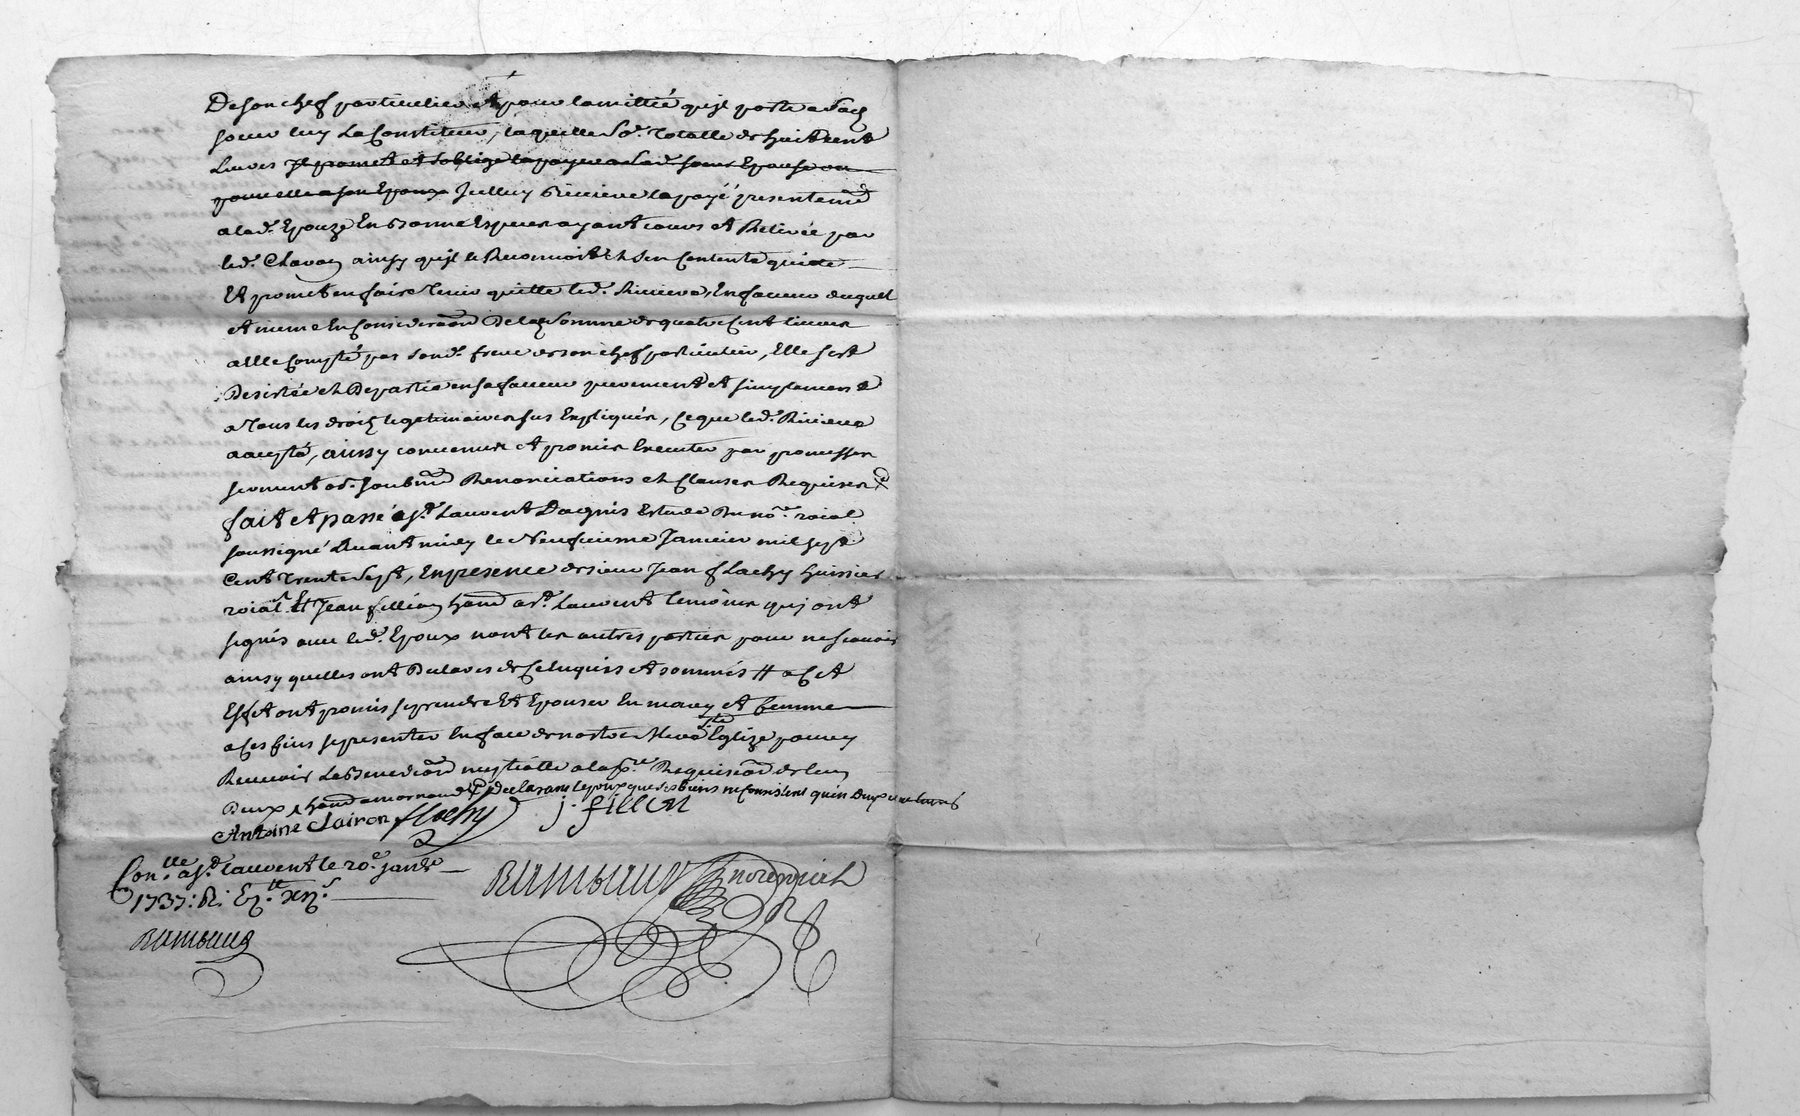 De son chef particulier et pour la mittié qu'jl porte a Sad
soeur luy La Constitue, laquelle So.e Totalle de huit cent
Livres Jl promet et soblige la payer a Sad. soeur Epouse ou
pour elle a son Epoux Jcelluy Riviere la payé presentemt
a lad. Epouze En bonne Especes ayant cours et Retirée par
led. Clavon ainsy qu'jl le Reconnoist et sen Contente quitte
Et promet en faire Tenir quitte led. Riviere, En faveur duquel
et meme En Consideraon De la Somme de quatre Cent livres
a Elle Compté par Sond. frere de son chef particulier, Elle sest
Desistée et Departie en sa faveur purement et simplement
a Tous les droits legitimaires sus Expliqués, Ce que led. Riviere
a accepté, ainsy convenus et promis Executer par promesses
serment od. soubmon Renonciations et Clauses Requises
fait et passé a St. Laurent Dagnis Estude Du nore. roial
soussigné Avant midy le Neufvieme Janvier mil sept
Cent Trente Sept, En presence de sieur Jean flachy huissier
roial Et Jean fillion hand a St. Laurent temoins quj ont
signés avec led. Epoux nont les autres parties pour ne scavoir
ainsy quelles ont Declarés de Ce Enquis et sommés # a Cet
Effet ont promis se prendre Et Epouser En mary et femme
a Ces fins se presenter En face de nostre Mere Ste Eglize pour y
Recevoir La Benediction nuptialle a la pre. Requisition de lun
Deux hand a mornand declarant lepoux que ses biens ne Consistent qu'en Deux cent livres
Antoine Clairon flachy j. fillion
Conlle. a St. laurent le 20e. janer
1737: R: